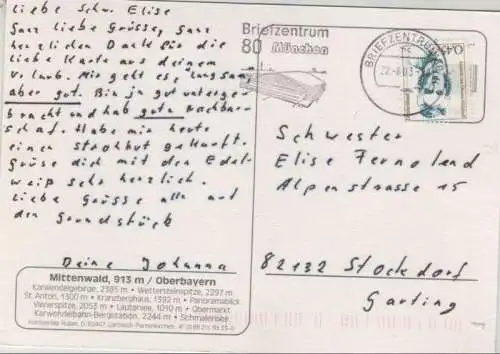 Liebe Schw. Elise
Ganz liebe Grüsse, Ganz
herzlichen Dank für die
liebe Karte aus deinem
Urlaub. Mir geht es, langsam
aber gut. Bin ja gut unterge-
bracht und hab gute Nachbar-
schaf. Habe mir heute
einen Strohhut gekauft.
Grüse dich mit den Edel-
weiß sehr herzlich.
Liebe Grüsse alle auf
den Grundstück
Deine Johanna
Mittenwald, 913 m / Oberbayern
Karwendelgebirge, 2385 m • Wettersteinspitze, 2297 m
St. Anton, 1300 m • Kranzberghaus, 1392 m • Panoramablick
Viererspitze, 2053 m • Lautersee, 1010 m • Obermarkt
Karwendelbahn-Bergstation, 2244 m • Schmalensee
Briefzentrum
80 München
BRIEFZENTRUM
Schwester
Elise
Alpenstrasse 15
82132 Stockdorf